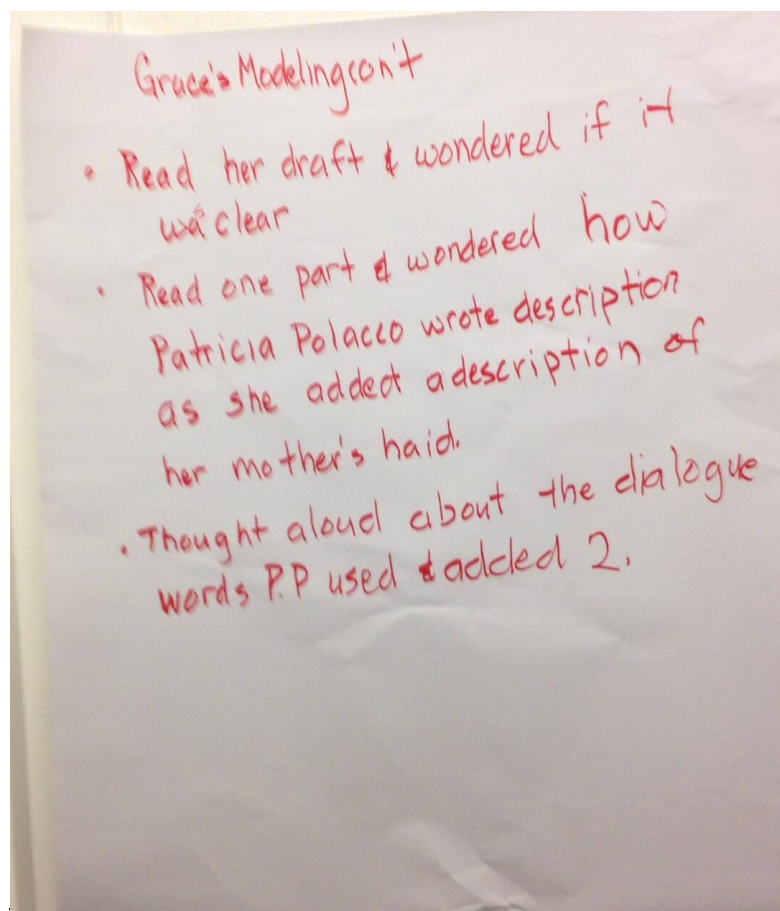 Grace's Modeling con't
• Read her draft & wondered if it
was clear
• Read one part & wondered how
Patricia Polacco wrote description
as she added a description of
her mother's haid.
• Thought aloud about the dialogue
words P.P used & added 2.